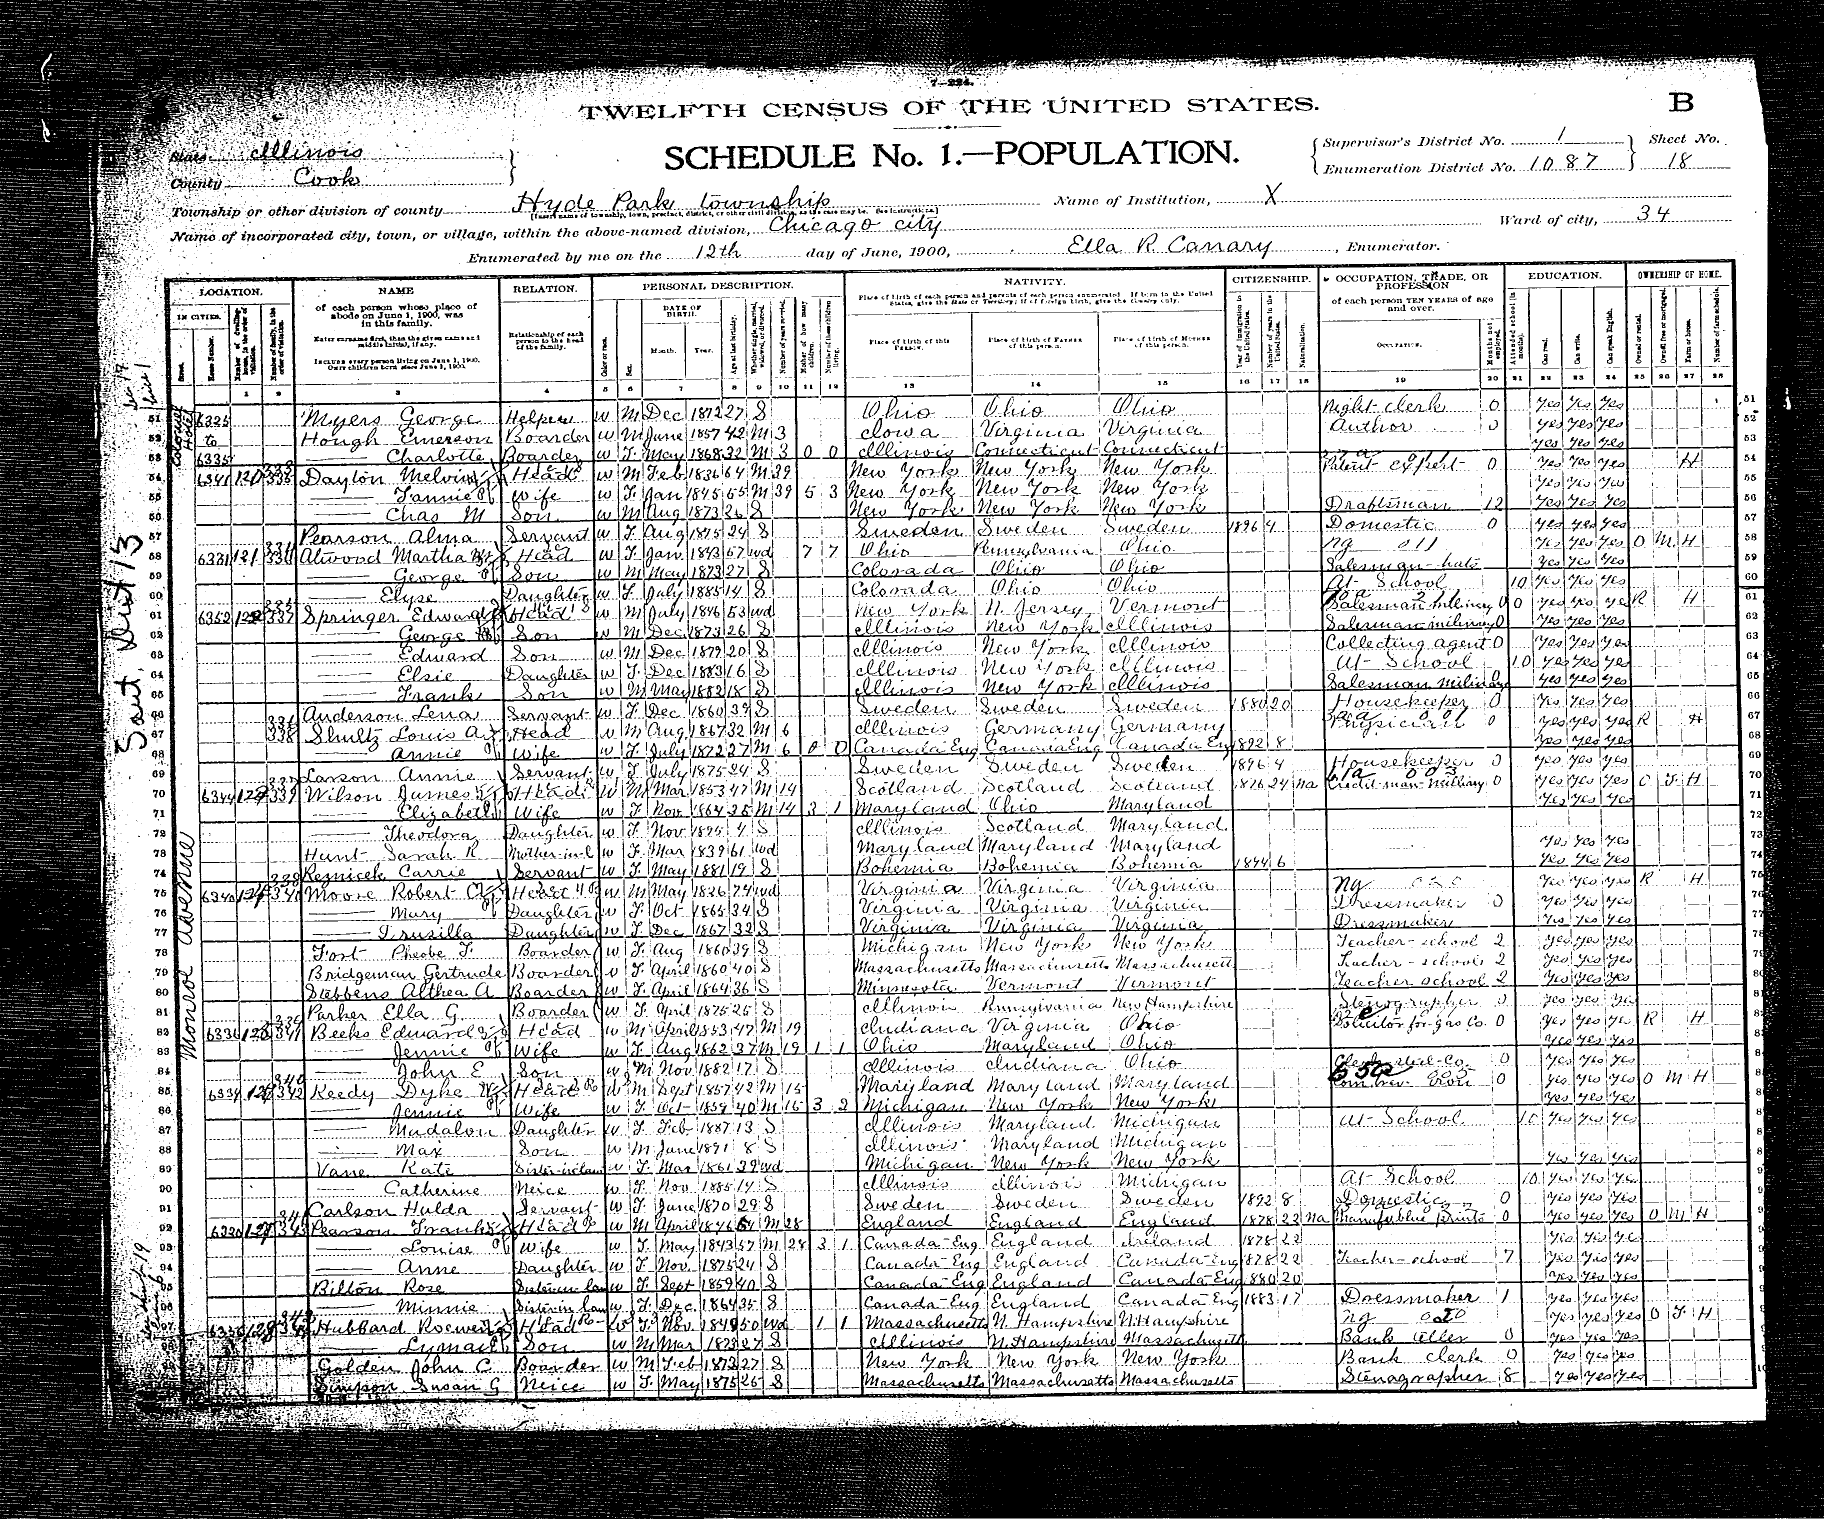 7-224.
TWELFTH CENSUS OF THE UNITED STATES.
B
SCHEDULE No. 1.—POPULATION.
State Illinois
County Cook
Supervisor's District No. 1
Enumeration District No. 1087
Sheet No. 18
Township or other division of county Hyde Park township
Name of Institution, X
Name of incorporated city, town, or village, within the above-named division, Chicago city
Ward of city, 34
Enumerated by me on the 12th day of June, 1900, Ella R Canary, Enumerator.
LOCATION. NAME RELATION. PERSONAL DESCRIPTION. NATIVITY. CITIZENSHIP. OCCUPATION, TRADE, OR PROFESSION EDUCATION. OWNERSHIP OF HOME.
IN CITIES. of each person whose place of abode on June 1, 1900, was in this family. Relationship of each person to the head of the family. DATE OF BIRTH. of each person TEN YEARS of age and over.
Enter surname first, then the given name and middle initial, if any.
Include every person living on June 1, 1900. Omit children born since June 1, 1900.
Month. Year. Place of birth of this Person. Place of birth of Father of this person. Place of birth of Mother of this person. Occupation.
1 2 3 4 5 6 7 8 9 10 11 12 13 14 15 16 17 18 19 20 21 22 23 24 25 26 27 28
51 6325 Myers George Helper w M Dec 1872 27 S Ohio Ohio Ohio Night clerk 0 Yes Yes Yes
52 to Hough Emerson Boarder w M June 1857 42 M 3 Iowa Virginia Virginia Author 0 yes yes yes
53 6335 — Charlotte Boarder w F May 1868 32 M 3 0 0 Illinois Connecticut Connecticut yes yes yes
54 6341 120 Dayton Melvin Head w M Feb 1836 64 M 39 New York New York New York Patent expert 0 Yes Yes Yes H
55 — Fannie Wife w F Jan 1845 55 M 39 5 3 New York New York New York Yes Yes Yes
56 — Chas M Son w M Aug 1873 26 S New York New York New York Draftsman 12 Yes Yes Yes
57 Pearson Alma Servant w F Aug 1875 24 S Sweden Sweden Sweden 1896 4 Domestic 0 yes yes yes
58 121 Atwood Martha Head w F Jan 1843 57 wd 7 7 Ohio Pennsylvania Ohio Yes Yes Yes O M H
59 — George Son w M May 1873 27 S Colorado Ohio Ohio Salesman hats Yes Yes Yes
60 — Elyse Daughter w F July 1885 14 S Colorado Ohio Ohio At School 10 Yes Yes Yes
61 6352 Springer Edward Head w M July 1846 53 wd New York N. Jersey Vermont Salesman milinery 0 Yes Yes Yes R H
62 — George Son w M Dec 1873 26 S Illinois New York Illinois Salesman milinery 0 Yes Yes Yes
63 — Edward Son w M Dec 1879 20 S Illinois New York Illinois Collecting agent 0 Yes Yes Yes
64 — Elsie Daughter w F Dec 1883 16 S Illinois New York Illinois At School 10 Yes Yes Yes
65 — Frank Son w M May 1882 18 S Illinois New York Illinois Salesman milinery Yes Yes Yes
66 Anderson Lena Servant w F Dec 1860 39 S Sweden Sweden Sweden 1880 20 Housekeeper 0 Yes Yes Yes
67 338 Shultz Louis A Head w M Aug 1867 32 M 6 Illinois Germany Germany Physician 0 yes yes yes R H
68 — Annie Wife w F July 1872 27 M 6 0 0 Canada Eng Canada Eng Canada Eng 1892 8 yes yes yes
69 Larson Annie Servant w F July 1875 24 S Sweden Sweden Sweden 1896 4 Housekeeper 0 yes yes yes
70 6344 339 Wilson James Head w M Mar 1853 47 M 14 Scotland Scotland Scotland 1876 24 na Credit man 0 Yes Yes Yes O F H
71 — Elizabeth Wife w F Nov 1864 35 M 14 3 1 Maryland Ohio Maryland Yes Yes Yes
72 — Theodora Daughter w F Nov 1895 4 S Illinois Scotland Maryland
73 Hunt Sarah R Mother-in-l w F Mar 1839 61 wd Maryland Maryland Maryland Yes Yes Yes
74 Reznicek Carrie Servant w F May 1881 19 S Bohemia Bohemia Bohemia 1894 6 Yes Yes Yes
75 6340 Moore Robert Head w M May 1826 74 wd Virginia Virginia Virginia Yes Yes Yes R H
76 — Mary Daughter w F Oct 1865 34 S Virginia Virginia Virginia Dressmaker 0 Yes Yes Yes
77 — Drusilla Daughter w F Dec 1867 32 S Virginia Virginia Virginia Dressmaker Yes Yes Yes
78 Fort Phoebe F Boarder w F Aug 1860 39 S Michigan New York New York Teacher-school 2 yes yes yes
79 Bridgeman Gertrude Boarder w F April 1860 40 S Massachusetts Massachusetts Massachusetts Teacher-school 2 yes yes yes
80 Stebbens Althea A Boarder w F April 1864 36 S Minnesota Vermont Vermont Teacher school 2 Yes Yes Yes
81 Parker Ella G. Boarder w F April 1875 25 S Illinois Pennsylvania New Hampshire Stenographer 0 Yes Yes Yes
82 6336 341 Beeks Edward Head w M April 1853 47 M 19 Indiana Virginia Ohio Solicitor for gas Co. 0 Yes Yes Yes R H
83 — Jennie Wife w F Aug 1862 37 M 19 1 1 Ohio Maryland Ohio Yes Yes Yes
84 — John E Son w M Nov 1882 17 S Illinois Indiana Ohio 0 Yes Yes Yes
85 6334 342 Keedy Dyke Head w M Sept 1857 42 M 15 Maryland Maryland Maryland 0 yes yes yes O M H
86 — Jennie Wife w F Oct 1859 40 M 15 3 2 Michigan New York New York Yes Yes Yes
87 — Madalon Daughter w F Feb 1887 13 S Illinois Maryland Michigan At School 10 Yes Yes Yes
88 — Max Son w M June 1891 8 S Illinois Maryland Michigan
89 Vane Kate Sister-in-law w F Mar 1861 39 wd Michigan New York New York Yes Yes Yes
90 — Catherine Neice w F Nov 1885 14 S Illinois Illinois Michigan At School 10 Yes Yes Yes
91 Carlson Hulda Servant w F June 1870 29 S Sweden Sweden Sweden 1892 8 Domestic 0 Yes Yes Yes
92 6330 127 343 Pearson Frank Head w M April 1846 54 M 28 England England England 1878 22 Na Manuf blue prints 0 Yes Yes Yes O M H
93 — Louise Wife w F May 1843 57 M 28 3 1 Canada-Eng England Ireland 1878 22 Yes Yes Yes
94 — Anne Daughter w F Nov 1875 24 S Canada-Eng England Canada-Eng 1878 22 Teacher-school 7 Yes Yes Yes
95 Bilton Rose Sister in law w F Sept 1859 40 S Canada-Eng England Canada-Eng 1880 20 Yes Yes Yes
96 — Minnie Sister in law w F Dec 1864 35 S Canada-Eng England Canada-Eng 1883 17 Dressmaker 1 yes yes yes
97 128 Hubbard Head w F Nov 1849 50 wd 1 1 Massachusetts N. Hampshire N. Hampshire Yes Yes Yes O F H
— Lyman Son w M Mar 1873 27 S Illinois N. Hampshire Massachusetts Bank teller 0 Yes Yes Yes
Golden John C Boarder w M Feb 1873 27 S New York New York New York Bank clerk 0 Yes Yes Yes
Simpson Susan G Neice w F May 1875 25 S Massachusetts Massachusetts Massachusetts Stenographer 8 Yes Yes Yes
Monroe Avenue